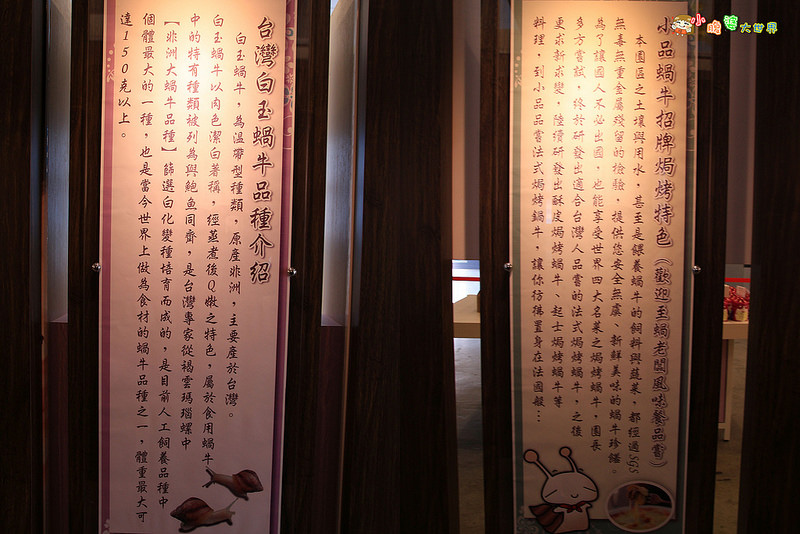 小品蝸牛招牌焗烤特色(歡迎至蝸老闆風味餐品嘗)
本園區之土壤與用水,甚至是餵養蝸牛的飼料與蔬菜,都經過SGS
無毒無重金屬殘留的檢驗,提供您安全無虞、新鮮美味的蝸牛珍饈。
為了讓國人不必出國,也能享受世界四大名菜之焗烤蝸牛,園長
多方嘗試,終於研發出適合台灣人品嘗的法式焗烤蝸牛,之後
更求新求變,陸續研發出酥皮焗烤蝸牛、起士焗烤蝸牛等
料理,到小品品嘗法式焗烤蝸牛,讓你彷彿置身在法國般…
台灣白玉蝸牛品種介紹
白玉蝸牛,為溫帶型種類,原產非洲,主要產於台灣。
白玉蝸牛以肉色潔白著稱,經蒸煮後Q嫩之特色,屬於食用蝸牛
中的特有種類被列為與鮑魚同齊,是台灣專家從褐雲瑪瑙螺中
【非洲大蝸牛品種】篩選白化變種培育而成的,是目前人工飼養品種中
個體最大的一種,也是當今世界上做為食材的蝸牛品種之一,體重最大可
達150克以上。
小腹婆大世界